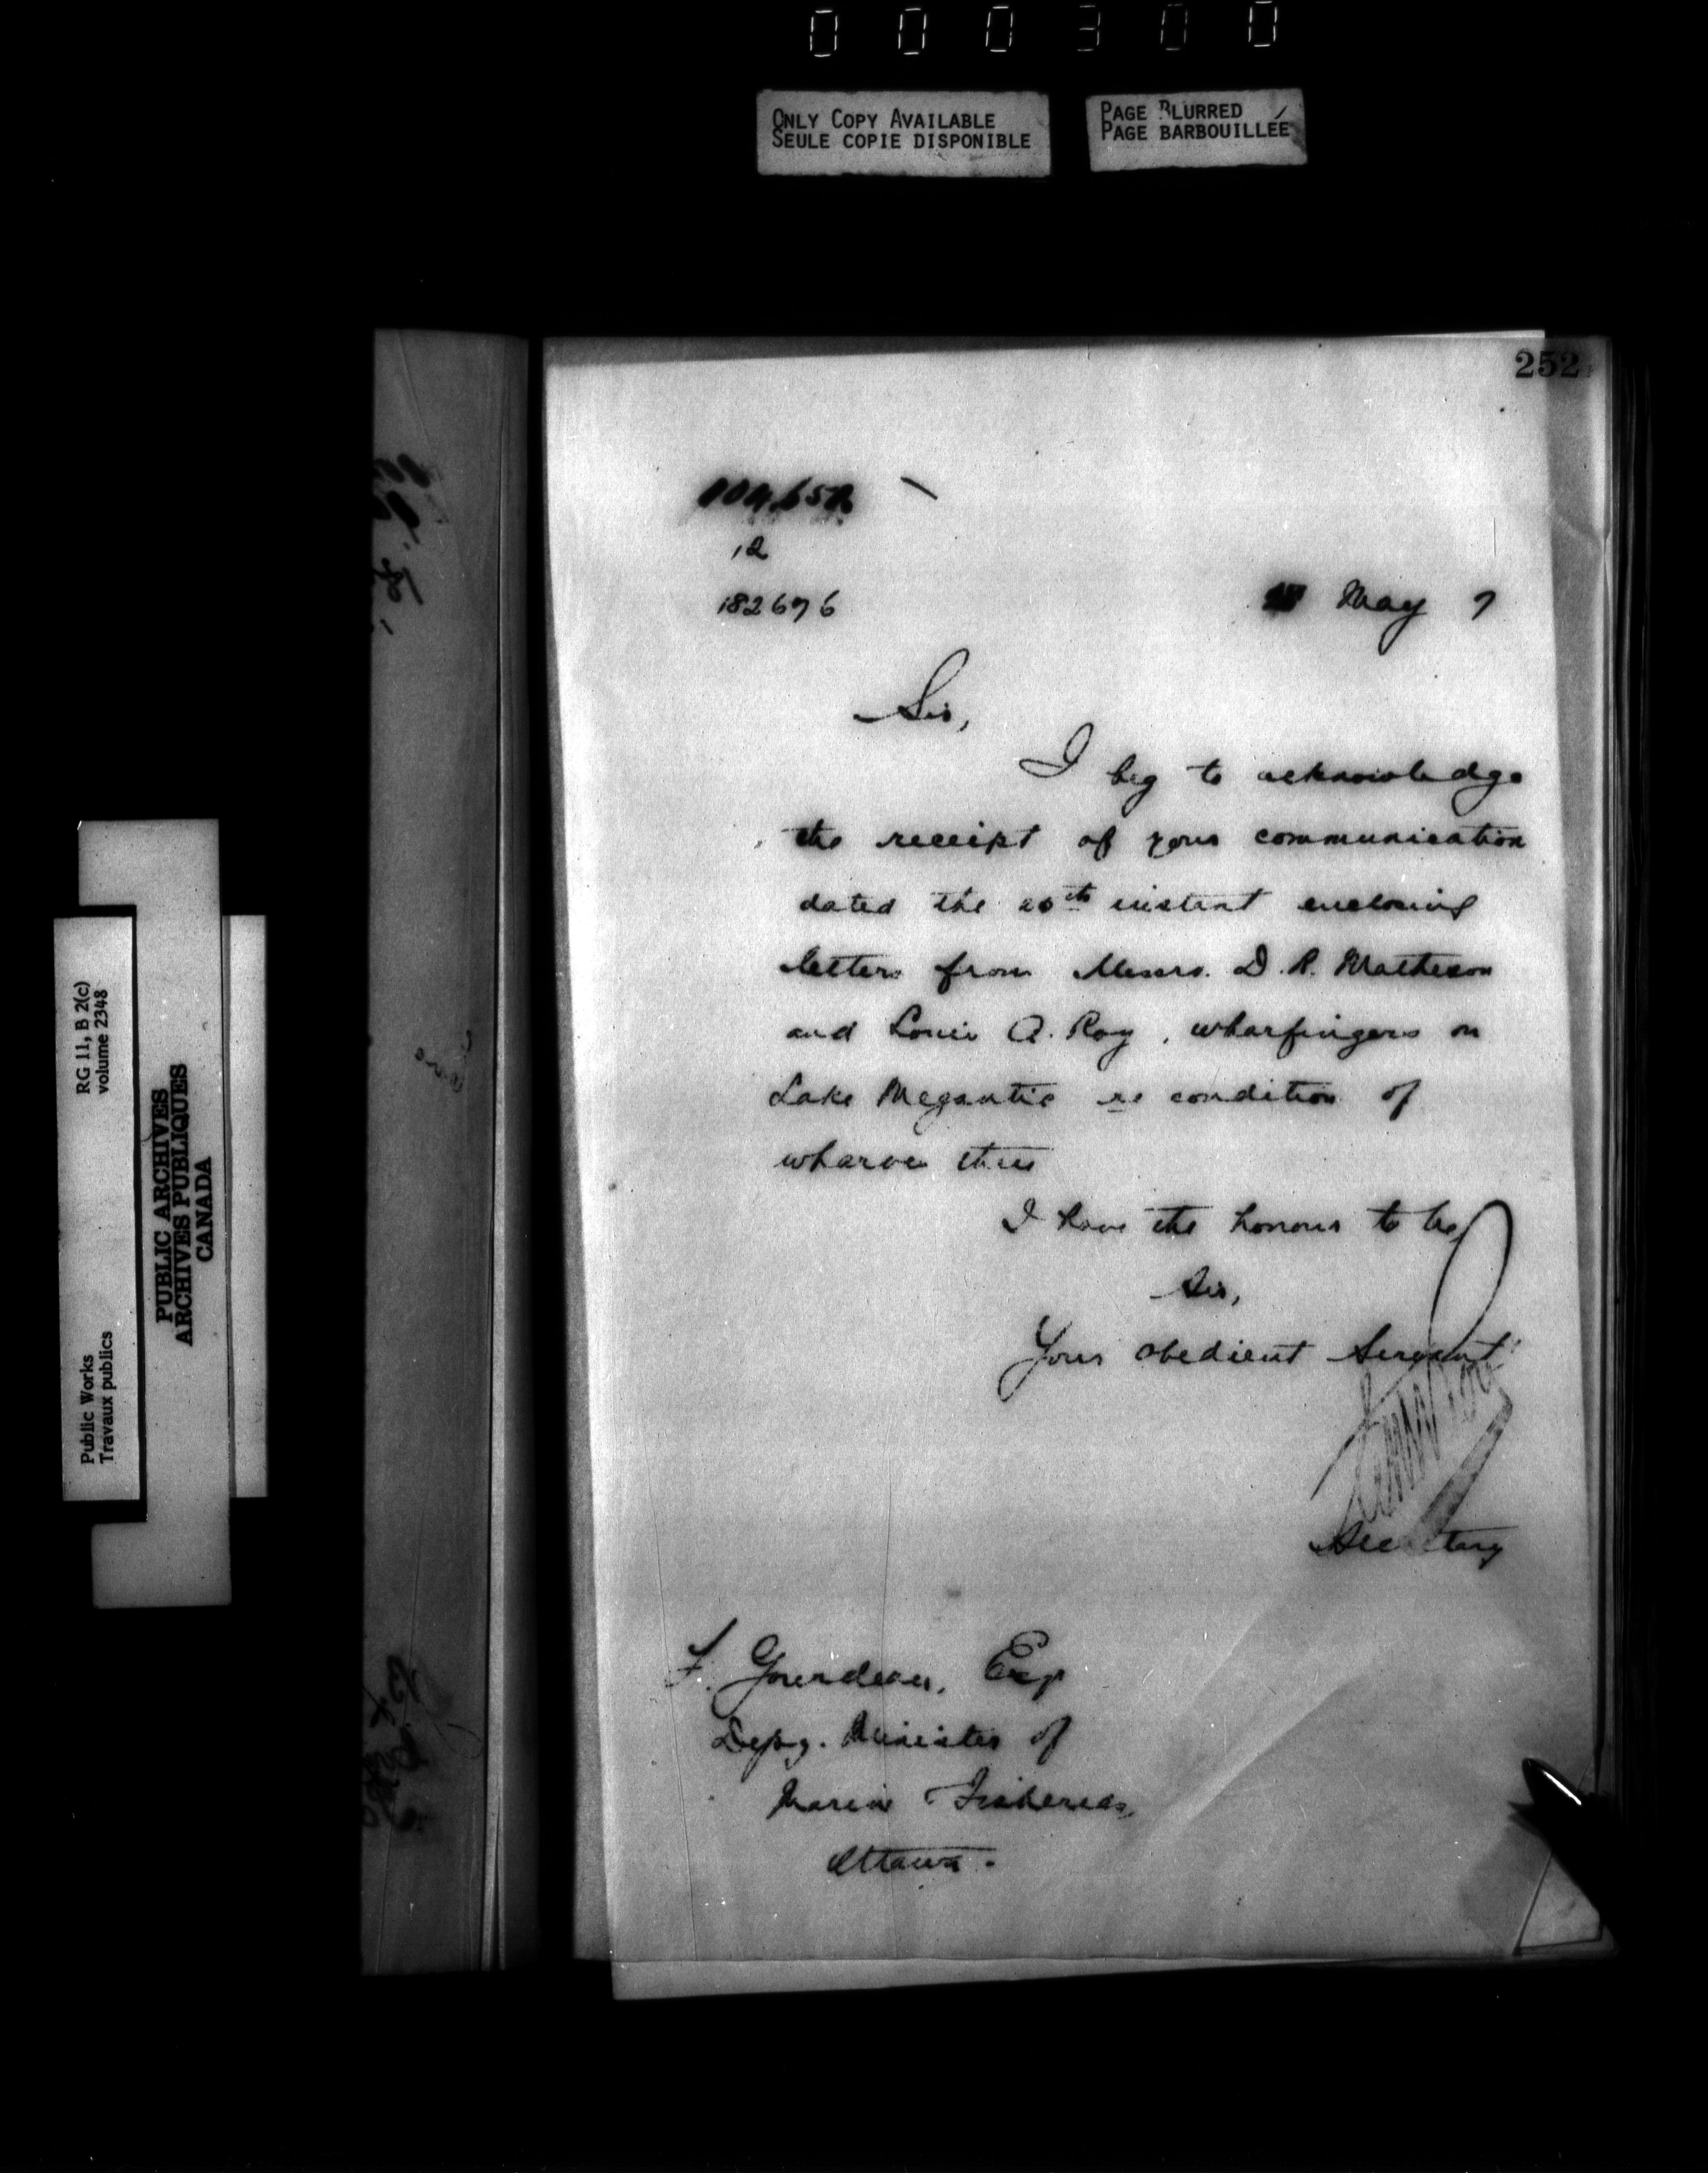 000300
ONLY COPY AVAILABLE
SEULE COPIE DISPONIBLE
PAGE BLURRED
PAGE BARBOUILLÉE
252
12
182676
May 7
Sir,
I beg to acknowledge
the receipt of your communication
dated the 20th instant enclosing
letters from Messrs. D. P. Matheson
and Louis A. Roy, wharfingers on
Lake Megantic re condition of
wharves there
I have the honour to be,
Sir,
Your obedient Servant
Secretary
F. Gourdeau, Esq
Depy. Minister of
Marine Fisheries,
Ottawa.
RG 11, B 2(c)
volume 2348
Public Works
Travaux publics
PUBLIC ARCHIVES
ARCHIVES PUBLIQUES
CANADA